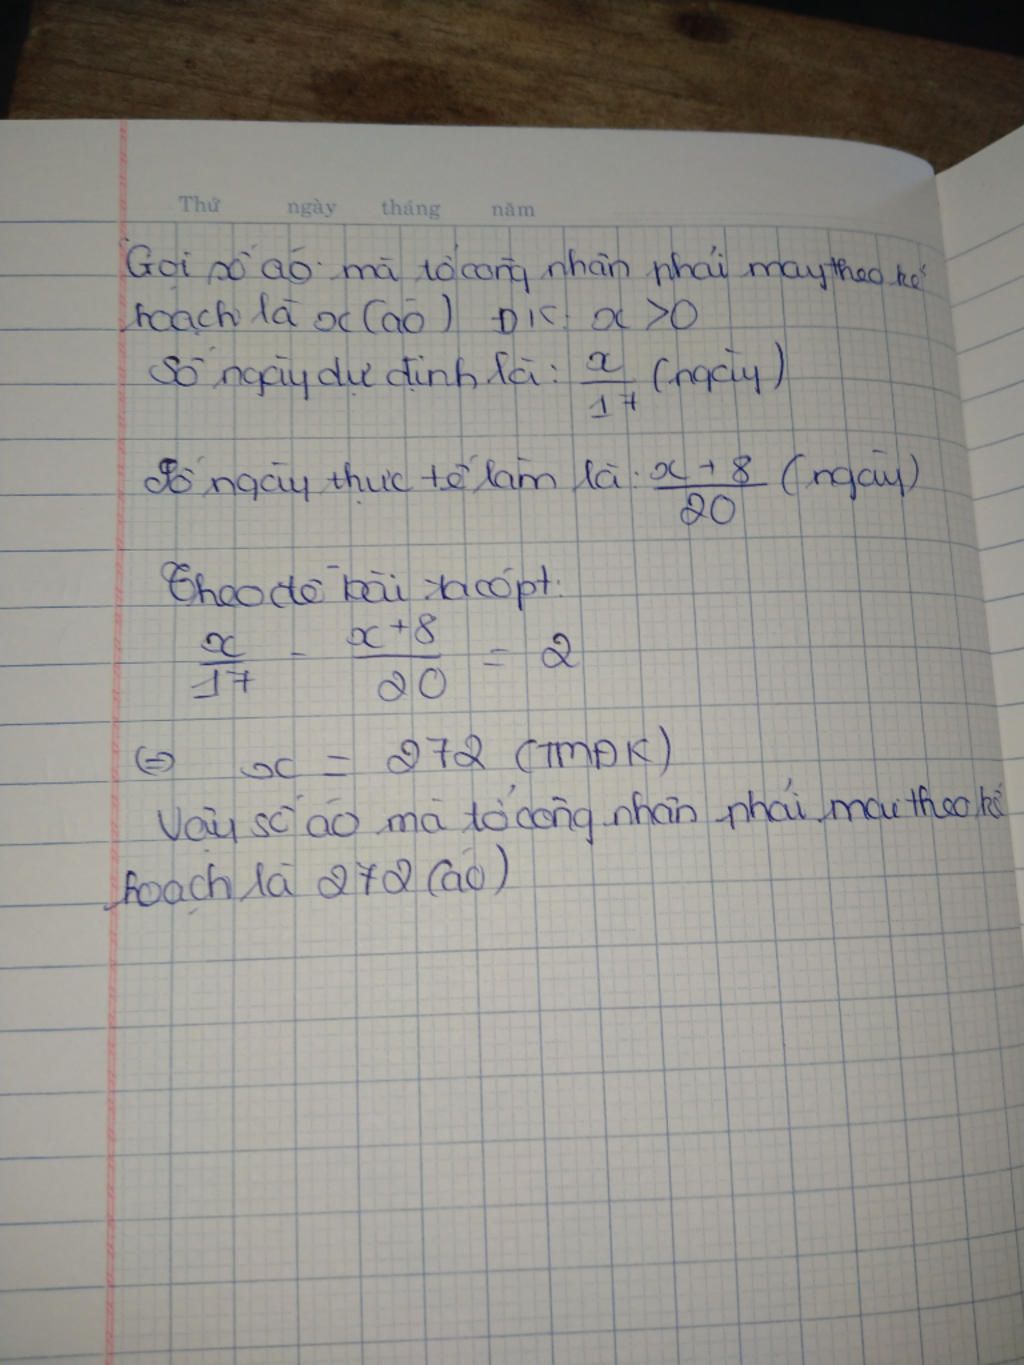 Thứ ngày tháng năm
Gọi số áo mà tổ công nhân phải may theo kế
hoạch là x (áo) ĐK: x > 0
Số ngày dự định là: x/17 (ngày)
Số ngày thực tế làm là: x + 8/20 (ngày)
Theo đề bài ta có pt:
x/17 - x+8/20 = 2
⇔ x = 272 (TMĐK)
Vậy số áo mà tổ công nhân phải may theo kế
hoạch là 272 (áo)